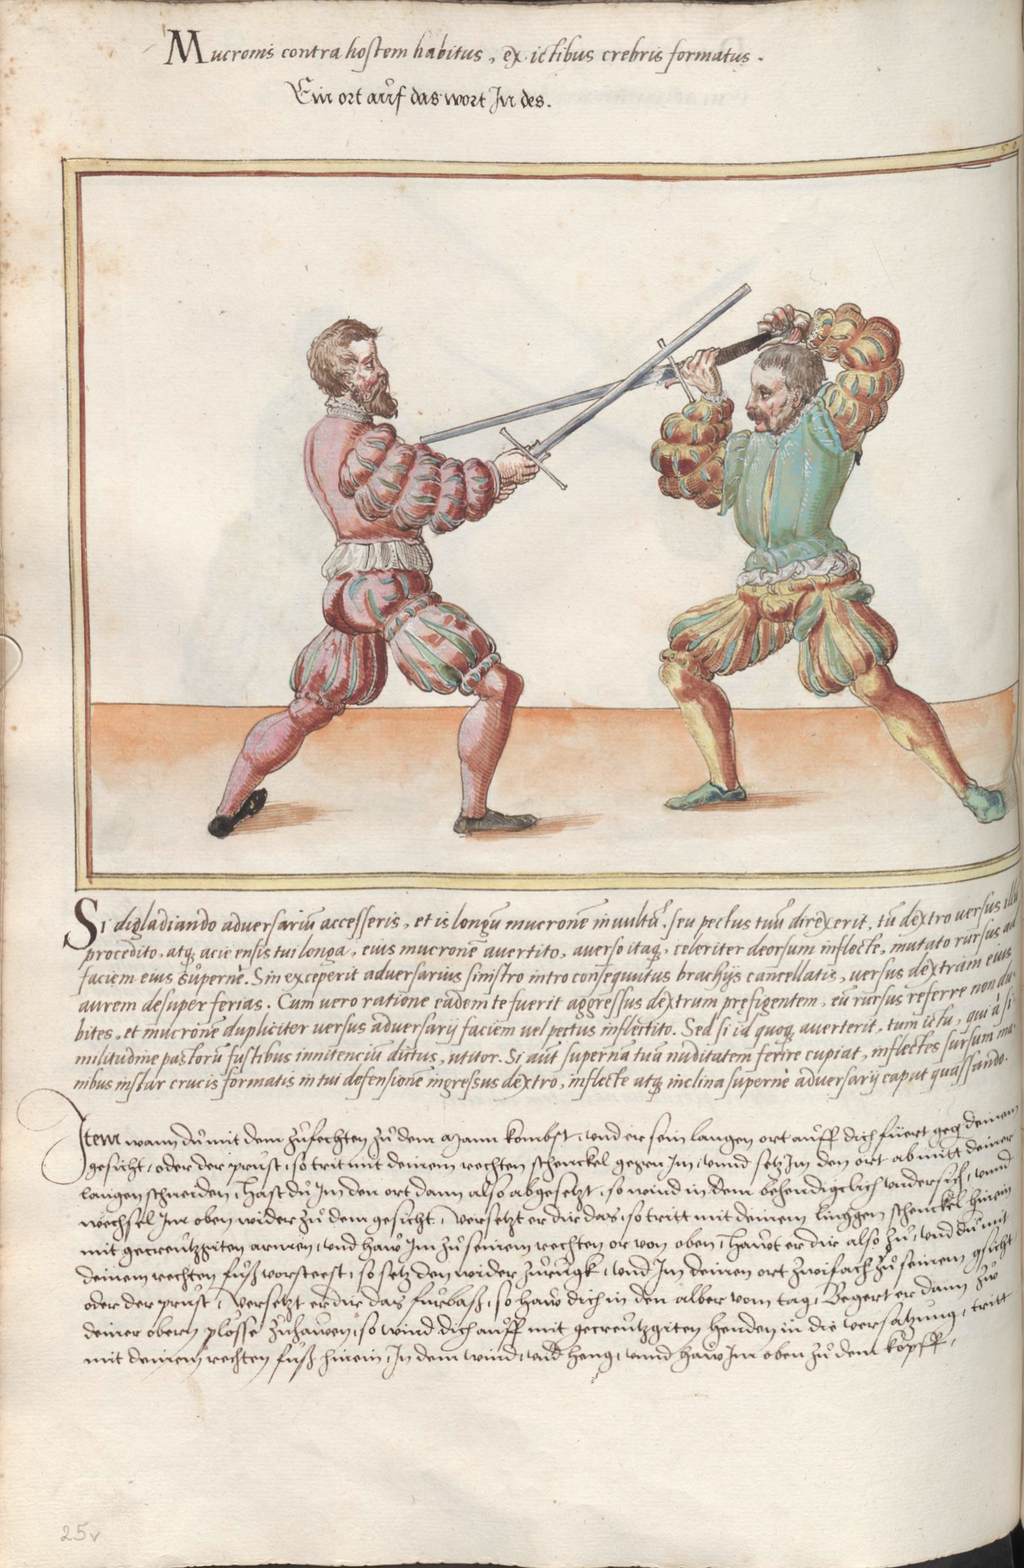 Mucronis contra hostem habitus, ex ictibus crebris formatus.
Ein ort auff das wort Jn des.
Si digladiando adversariũ accesseris, et is longũ mucronẽ in vultũ, seu pectus tuũ direxerit, tũ dextro versus illũ
procedito, atq; acie ensis tui longa, eius mucronẽ avertito, averso itaq;, celeriter deorsum inflecte, mutato rursus ad
faciem eius supernè. Sin exceperit adversarius sinistro intro consequutus brachijs cancellatis, versus dextram eius
aurem desuper ferias. Cum vero ratione eadem te fuerit aggressus dextrum præfigentem, eũ rursus referre non du-
bites, et mucronẽ dupliciter versus adversarij faciem vel pectus inflectito. Sed si id quoq; averterit, tum ictu, qui à si
militudine pastorũ fustibus innitenciũ dictus, utitor. Si aũt supernã tuã nuditatem ferire cupiat, inflectes sursum ma-
nibus instar crucis formatis in tui defensionẽ ingressus dextro, inflecte atq; inclina supernè adversarij caput quassando.
Jtem wann du mit dem zufechten zu dem Mann kombst, und er sein langen ort auff dich füert geg deinem
gesicht, oder der prust, so trit mit deinem rechten schenckel gegen Jm, unnd setz Jm den ort ab mitt deiner
langen schneiden, Hast du Jm den ort dann also abgesetzt, so wind in dem behendigclich undersich, unnd
wechsel Jm oben wider zu dem gesicht, Versetzt er dir das, so tritt mit deinem linggen schenckel hinein
mit gecreutzgiten armen, und haw Jm zu seinem rechten or von oben, Hawt er dir also zu, und du mit
deinem rechten fuß vorsteest, so setz den wider zurugk, und Jm deinen ort zwifach zu seinem gsicht
oder der prust, Versetzt er dir das furbaß, so haw dich in den alber vom tag, Begert er dann zu
deiner obern plosse zuhawen, so wind dich auff mit gecreutzgiten henden in die versatzung, tritt
mit deinem rechten fuß hinein, Jn dem wind, und heng, unnd haw Jm oben zu dem kopff,
25v